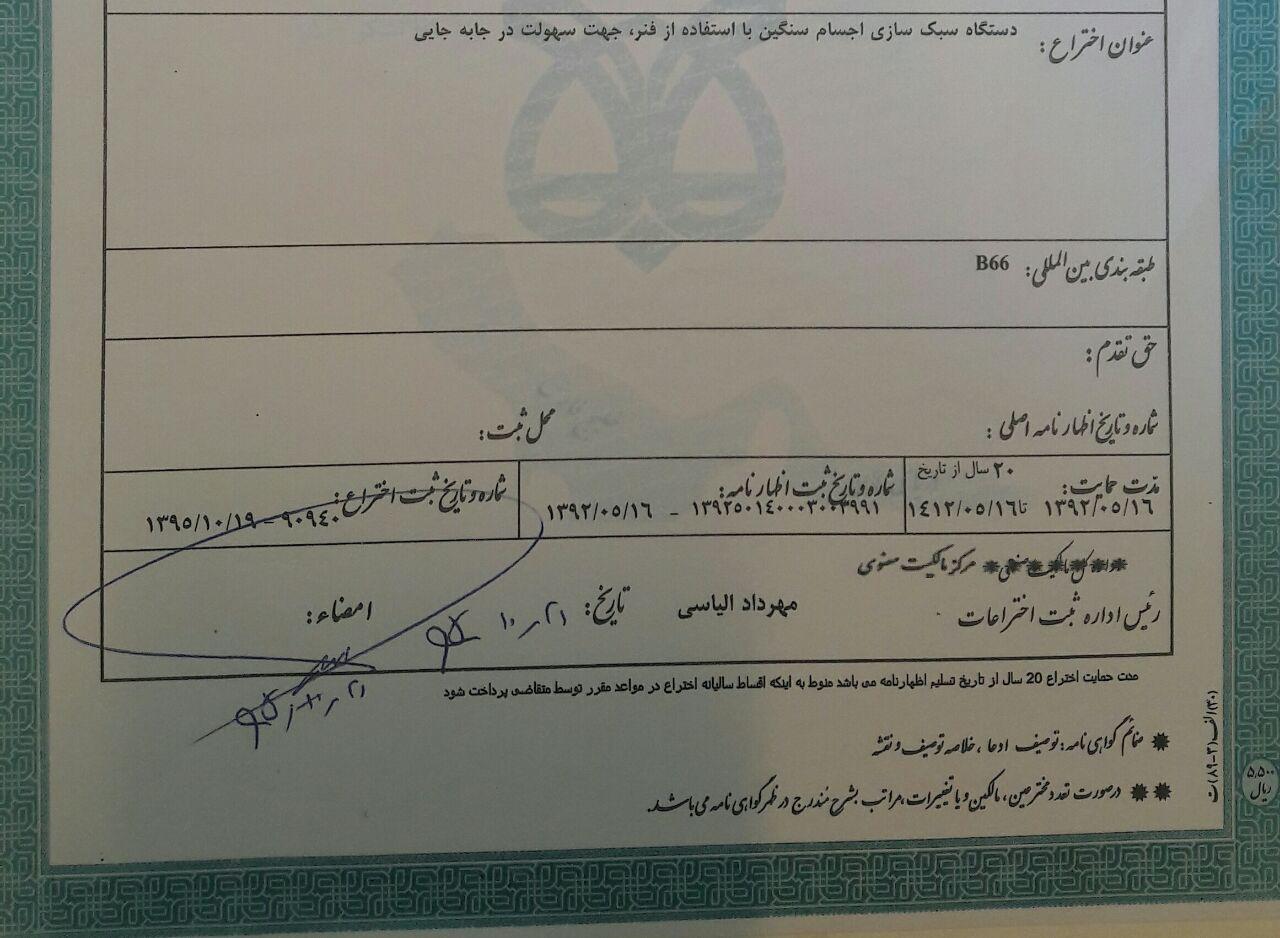 عنوان اختراع: دستگاه سبک سازی اجسام سنگین با استفاده از فنر، جهت سهولت در جابه جایی
طبقه بندی بین المللی: B66
حق تقدم:
شماره و تاریخ اظهارنامه اصلی: محل ثبت:
مدّت حمایت: ۲۰ سال از تاریخ
۱۳۹۲/۰۵/۱۶ تا ۱۴۱۲/۰۵/۱۶
شماره و تاریخ ثبت اظهارنامه:
۱۳۹۲۵۰۱۴۰۰۰۳۰۰۳۹۹۱ - ۱۳۹۲/۰۵/۱۶
شماره و تاریخ ثبت اختراع:
۹۰۹۴۰ - ۱۳۹۵/۱۰/۱۹
اداره کل مالکیت صنعتی مرکز مالکیت معنوی
رئیس اداره ثبت اختراعات مهرداد الیاسی تاریخ: ۲۱ ر ۱۰ ۹۵ امضاء:
مدت حمایت اختراع 20 سال از تاریخ تسلیم اظهارنامه می باشد منوط به اینکه اقساط سالیانه اختراع در مواعد مقرر توسط متقاضی پرداخت شود
✹ ضمائم گواهی نامه: توصیف ادعا، خلاصه توصیف و نقشه
✹✹ درصورت تعدد مخترعین، مالکین و یا تغییرات، مراتب بشرح مندرج در ظهر گواهی نامه می باشد.
(۳۰) الف (۳-۸۹) ت
۵,۵۰۰
ریال